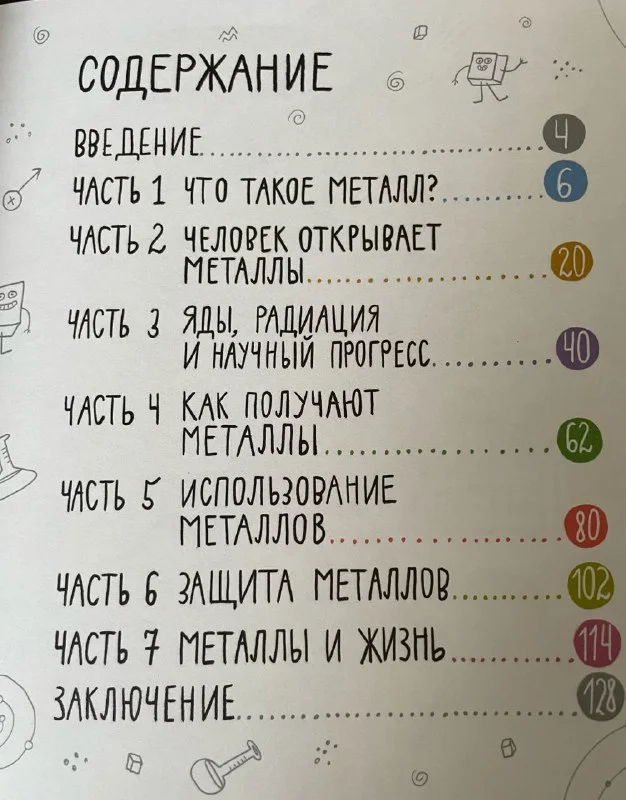 СОДЕРЖАНИЕ
ВВЕДЕНИЕ 4
ЧАСТЬ 1 ЧТО ТАКОЕ МЕТАЛЛ? 6
ЧАСТЬ 2 ЧЕЛОВЕК ОТКРЫВАЕТ
МЕТАЛЛЫ 20
ЧАСТЬ 3 ЯДЫ, РАДИАЦИЯ
И НАУЧНЫЙ ПРОГРЕСС 40
ЧАСТЬ 4 КАК ПОЛУЧАЮТ
МЕТАЛЛЫ 62
ЧАСТЬ 5 ИСПОЛЬЗОВАНИЕ
МЕТАЛЛОВ 80
ЧАСТЬ 6 ЗАЩИТА МЕТАЛЛОВ 102
ЧАСТЬ 7 МЕТАЛЛЫ И ЖИЗНЬ 114
ЗАКЛЮЧЕНИЕ 128